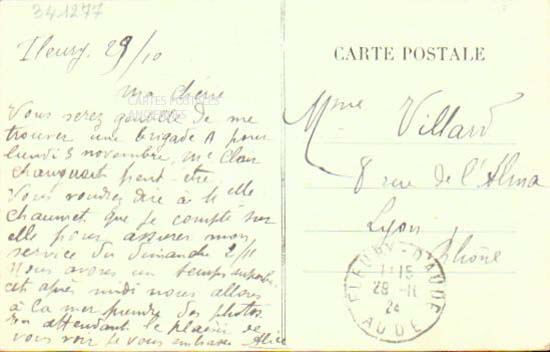 341277
Fleury 29/10
CARTE POSTALE
Ma chère
CARTES POSTALES
ANCIENNES
Vous serez gentille de me
trouver une brigade A pour
lundi 3 novembre, Me Clair
peut-être.
Vous voudrez dire à Melle
Chaumet que je compte sur
elle pour assurer mon
service du dimanche 2/11
Nous avons un temps superbe.
cet après midi nous allons
à la mer prendre des photos
En attendant le plaisir de
vous voir je vous embrasse Alice
Mme Villard
8 rue de l'Alma
Lyon
Rhône
FLEURY-D'AUDE
AUDE